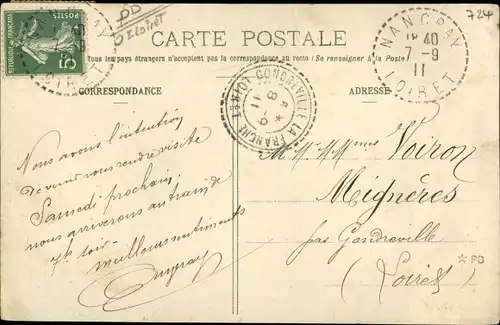 DD
Loiret
724
CARTE POSTALE
Tous les pays étrangers n'acceptent pas la correspondance au recto (Se renseigner à la Poste)
CORRESPONDANCE
ADRESSE
POSTES
5
NANCRAY
LOIRET
NANCRAY
18 40
7 -9
11
LOIRET
GONDREVILLE LA FRANCHE
8 -9
11
LOIRET
Nous avons l'intention
de venir vous rendre visite
Samedi prochain
nous arriverons au train de
7h soir
meilleurs sentiments
M. Mmes Voiron
Mignères
par Gondreville
(Loiret)
*PD